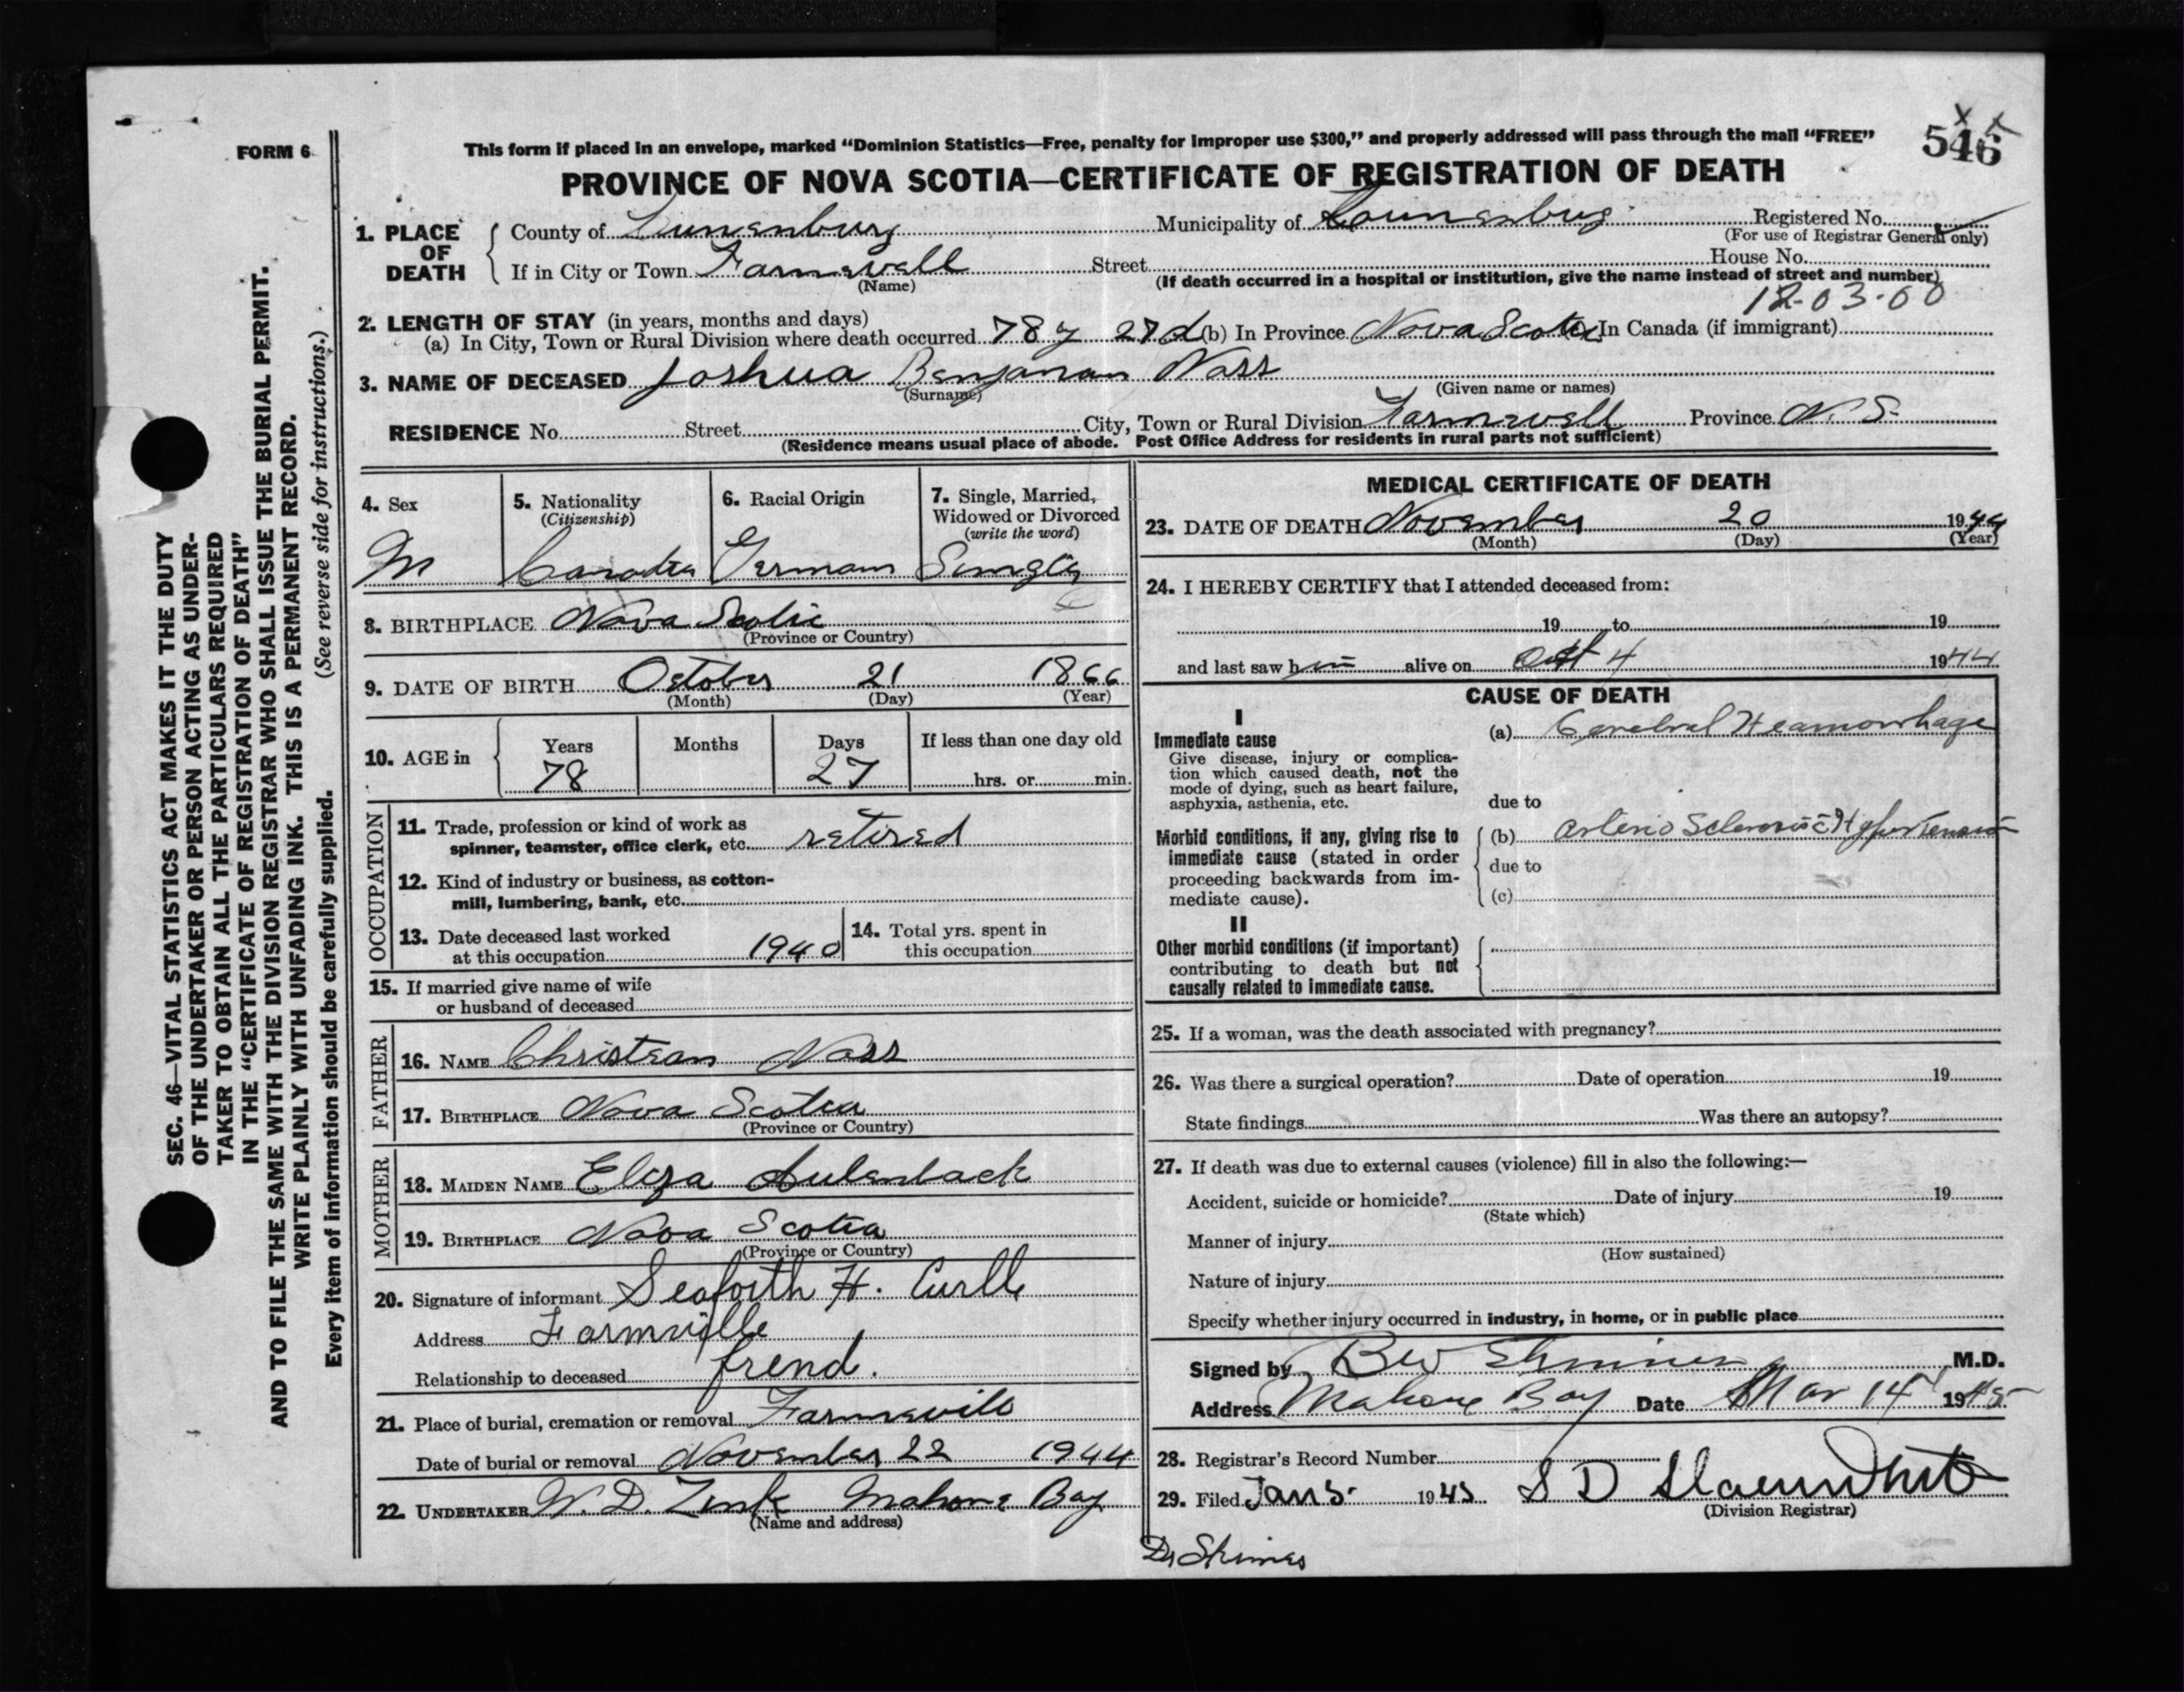 FORM 6
This form if placed in an envelope, marked "Dominion Statistics—Free, penalty for improper use $300," and properly addressed will pass through the mail "FREE"
546
PROVINCE OF NOVA SCOTIA—CERTIFICATE OF REGISTRATION OF DEATH
1. PLACE OF DEATH
County of Lunenburg Municipality of Registered No.
(For use of Registrar General only)
If in City or Town Street House No.
(Name) (If death occurred in a hospital or institution, give the name instead of street and number)
12-03-00
2. LENGTH OF STAY (in years, months and days)
(a) In City, Town or Rural Division where death occurred 78 y 27 d (b) In Province Nova Scotia In Canada (if immigrant)
3. NAME OF DECEASED Joshua Benjaman Nass
(Surname) (Given name or names)
RESIDENCE No. Street City, Town or Rural Division Province N.S.
(Residence means usual place of abode. Post Office Address for residents in rural parts not sufficient)
4. Sex
M
5. Nationality
(Citizenship)
6. Racial Origin
German
7. Single, Married, Widowed or Divorced
(write the word)
8. BIRTHPLACE Nova Scotia
(Province or Country)
9. DATE OF BIRTH October 21 1866
(Month) (Day) (Year)
10. AGE in
Years Months Days If less than one day old
78 27 hrs. or min.
OCCUPATION
11. Trade, profession or kind of work as
spinner, teamster, office clerk, etc. retired
12. Kind of industry or business, as cotton-
mill, lumbering, bank, etc.
13. Date deceased last worked
at this occupation 1940
14. Total yrs. spent in
this occupation
15. If married give name of wife
or husband of deceased
FATHER
16. NAME Christian Nass
17. BIRTHPLACE Nova Scotia
(Province or Country)
MOTHER
18. MAIDEN NAME Eliza Aulenback
19. BIRTHPLACE Nova Scotia
(Province or Country)
20. Signature of informant Seaforth H. Curll
Address Farmville
Relationship to deceased frend.
21. Place of burial, cremation or removal
Date of burial or removal November 22 1944
22. UNDERTAKER W. D. Zink Mahone Bay
(Name and address)
MEDICAL CERTIFICATE OF DEATH
23. DATE OF DEATH November 20 1944
(Month) (Day) (Year)
24. I HEREBY CERTIFY that I attended deceased from:
19 to 19
and last saw him alive on Oct 4 1944
CAUSE OF DEATH
I
Immediate cause
Give disease, injury or complica-
tion which caused death, not the
mode of dying, such as heart failure,
asphyxia, asthenia, etc.
(a) Cerebral Heamorrhage
due to
Morbid conditions, if any, giving rise to
immediate cause (stated in order
proceeding backwards from im-
mediate cause).
(b) arterio Sclerosis c̄ Hypertension
due to
(c)
II
Other morbid conditions (if important)
contributing to death but not
causally related to immediate cause.
25. If a woman, was the death associated with pregnancy?
26. Was there a surgical operation? Date of operation 19
State findings Was there an autopsy?
27. If death was due to external causes (violence) fill in also the following:—
Accident, suicide or homicide? Date of injury 19
(State which)
Manner of injury
(How sustained)
Nature of injury
Specify whether injury occurred in industry, in home, or in public place
Signed by M.D.
Address Mahone Bay Date Mar 14 1945
28. Registrar's Record Number
29. Filed Jan 5. 1945 S D Slaunwhite
(Division Registrar)
SEC. 46—VITAL STATISTICS ACT MAKES IT THE DUTY
OF THE UNDERTAKER OR PERSON ACTING AS UNDER-
TAKER TO OBTAIN ALL THE PARTICULARS REQUIRED
IN THE "CERTIFICATE OF REGISTRATION OF DEATH"
AND TO FILE THE SAME WITH THE DIVISION REGISTRAR WHO SHALL ISSUE THE BURIAL PERMIT.
WRITE PLAINLY WITH UNFADING INK. THIS IS A PERMANENT RECORD.
(See reverse side for instructions.)
Every item of information should be carefully supplied.